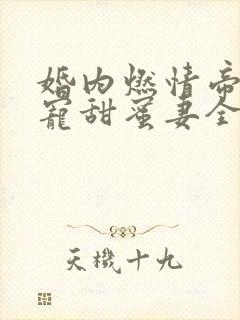 婚内燃情帝
寵甜蜜妻全
天機十九